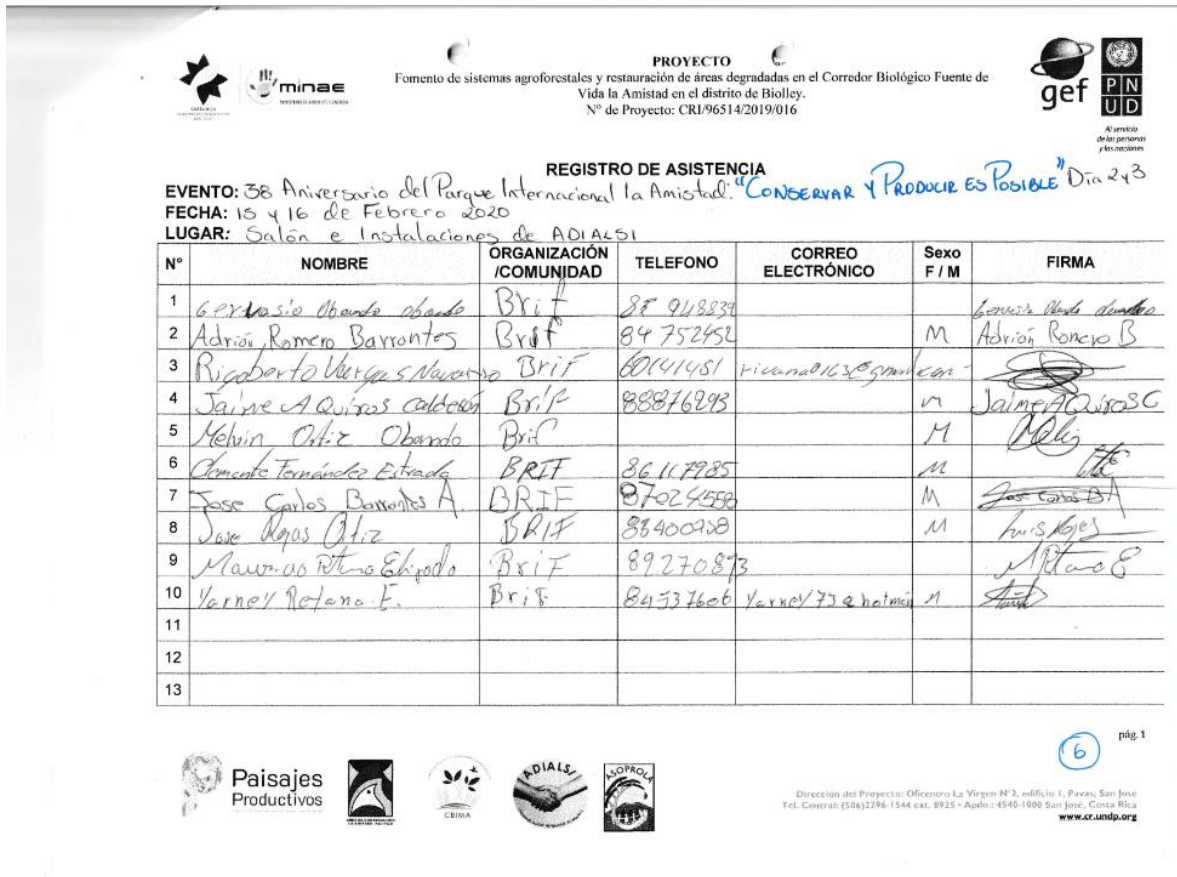 PROYECTO
Fomento de sistemas agroforestales y restauración de áreas degradadas en el Corredor Biológico Fuente de
Vida la Amistad en el distrito de Biolley.
N° de Proyecto: CRI/96514/2019/016
COSTA RICA
minae
gef
PN
UD
Al servicio
de las personas
y las naciones
REGISTRO DE ASISTENCIA
EVENTO: 38 Aniversario del Parque Internacional la Amistad: "CONSERVAR Y PRODUCIR ES POSIBLE" Día 2y3
FECHA: 15 y 16 de Febrero 2020
LUGAR: Salón e Instalaciones de ADIALSI
N° NOMBRE ORGANIZACIÓN /COMUNIDAD TELEFONO CORREO ELECTRÓNICO Sexo F / M FIRMA
1 Gervasio Obando Obando Brif Gervasio Obando
2 Adrián Romero Barrantes Brif 84 752452 M Adrián Romero B
3 Rigoberto Vargas Navarro Brif 60141451
4 Jaime A Quiros Calderón Brif 88876293 M Jaime A Quiros C
5 Melvin Ortiz Obando Brif M
6 Clemente Fernández Estrada BRIF 86117985 M
7 Jose Carlos Barrantes A. BRIF 87024558 M Jose Carlos B A
8 Jose Rojas Ortiz BRIF M Luis Rojes
9 Brif 89270893
10 Yarney Retana E. Brif 84537606 M
11
12
13
pág. 1
6
Paisajes
Productivos
CBIMA
ADIALSI
ASOPROLA
Dirección del Proyecto: Oficentro La Virgen N°2, edificio 1, Pavas, San José
Tel. Central: (506)2296-1544 ext. 8925 • Apdo.: 4540-1000 San José, Costa Rica
www.cr.undp.org